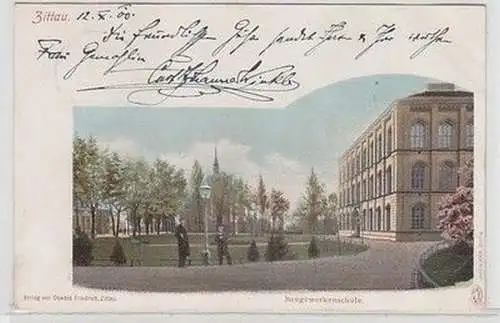 Zittau. 12. X. 00.
Die freundlichsten Grüße sendet Ihnen & Ihrer werthen
Frau Gemahlin
Carl
Verlag von Oswald Friedrich, Zittau.
Baugewerkenschule.